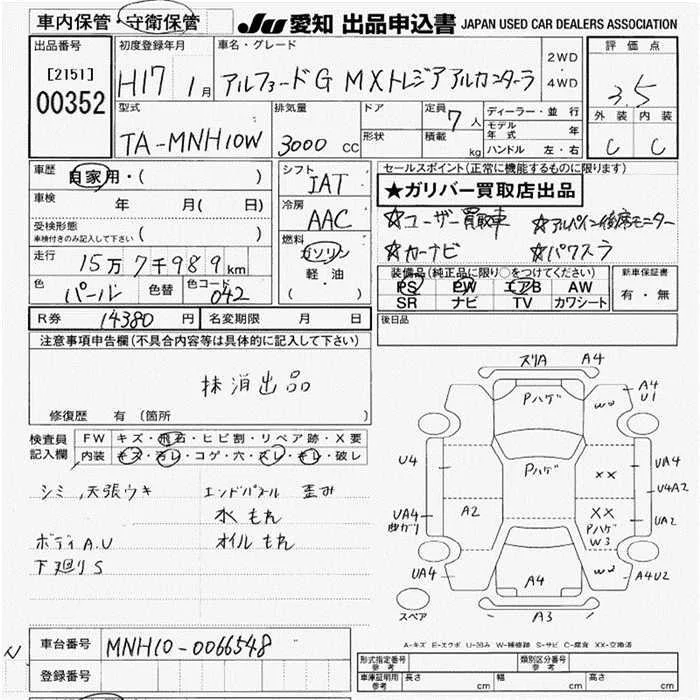 車内保管・守衛保管 JU 愛知 出品申込書 JAPAN USED CAR DEALERS ASSOCIATION
出品番号 初度登録年月 車名・グレード 2WD・4WD 評価点
[2151] 00352 H17 1月 アルファードG MXトレジアアルカンターラ 3.5
型式 排気量 ドア 定員 7人 ディーラー・並行 外装 内装
TA-MNH10W 3000cc 形状 積載 kg モデル年式 年 ハンドル 左・右 C C
車歴 自家用・( ) シフト IAT セールスポイント(正常に機能するものに限ります)
車検 年 月( 日) 冷房 AAC ★ガリバー買取店出品
受検形態 車検付きのみ記入して下さい ( ) 燃料 ガソリン 軽・油 ( ・ ) ☆ユーザー買取車 ☆アルパイン後席モニター
走行 15万7千989km ☆カーナビ ☆パワスラ
色 パール 色替 色コード 042 装備品(純正品に限り○をつけてください) 新車保証書
PS PW エアB AW 有・無
SR ナビ TV カワシート
R券 14380円 名変期限 月 日 後日品
注意事項申告欄(不具合内容等は具体的に記入して下さい)
抹消出品
修復歴 有(箇所
検査員記入欄 FW キズ・飛石・ヒビ割・リペア跡・X要
内装 キズ・汚レ・コゲ・穴・スレ・キレ・破レ
シミ,天張ウキ エンドパネル 歪み
水もれ
ボディA.U オイルもれ
下廻りS
ズリA A4
Pハゲ W2 A4 U1
U4 Pハゲ XX UA4
U4A2
UA4 曲ガリ A2 XX Pハゲ W3 UA2
UA4 A4 W2 A4U2
スペア A3
A-キズ E-エクボ U-凹み W-補修跡 S-サビ C-腐食 XX-交換済
車台番号 MNH10-0066548
登録番号
形式指定番号 参考 類別区分番号 参考
車庫証明用 参考 長さ cm 幅 cm 高さ cm